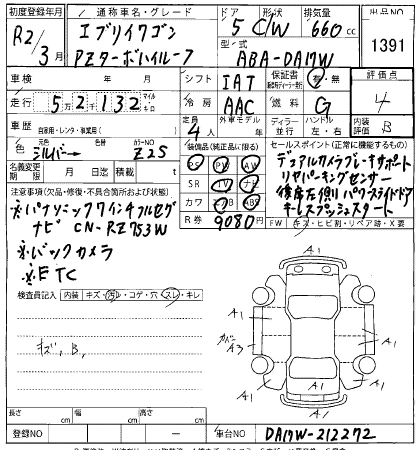 初度登録年月 通称車名・グレード ドア 形状 排気量 出品NO
R2/3月 エブリイワゴン PZターボハイルーフ 5 C/W 660cc 1391
型式 ABA-DA17W
車検 年 月 日 シフト IAT 保証書 有・無 評価点
走行 52132 マイル キロ 冷房 AAC 燃料 G 4
車歴 自家用・レンタ・事業用( ) 定員 4人 外車モデル 年 ディーラー 並行 ハンドル 左・右 内装 B
色 シルバー カラーNO Z2S 装備品(純正品に限る) セールスポイント(正常に機能するもの)
名義変更期限 月 日迄 積載 t PS PW AW デュアルカメラブレーキサポート
注意事項(欠品・修復・不具合箇所および状態) SR TV ナビ リヤパーキングセンサー
※パナソニック7インチフルセグ カワ ABS 後席左側パワースライドドア
ナビ CN-RZ753W R券 9080円 キーレスプッシュスタート
※バックカメラ FW キズ・ヒビ割・リペア跡・X要
※ETC
検査員記入 内装 キズ・汚レ・コゲ・穴 スレ・キレ
キズ,B,
A1
A1 A1
A1
A3
A1
A1 A1
A1
長さ cm 幅 cm 高さ cm
登録NO ー 車台NO DA17W-212272